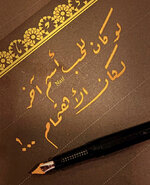 لو كان للحب أسم آخر
لكان الأهتمام ..!